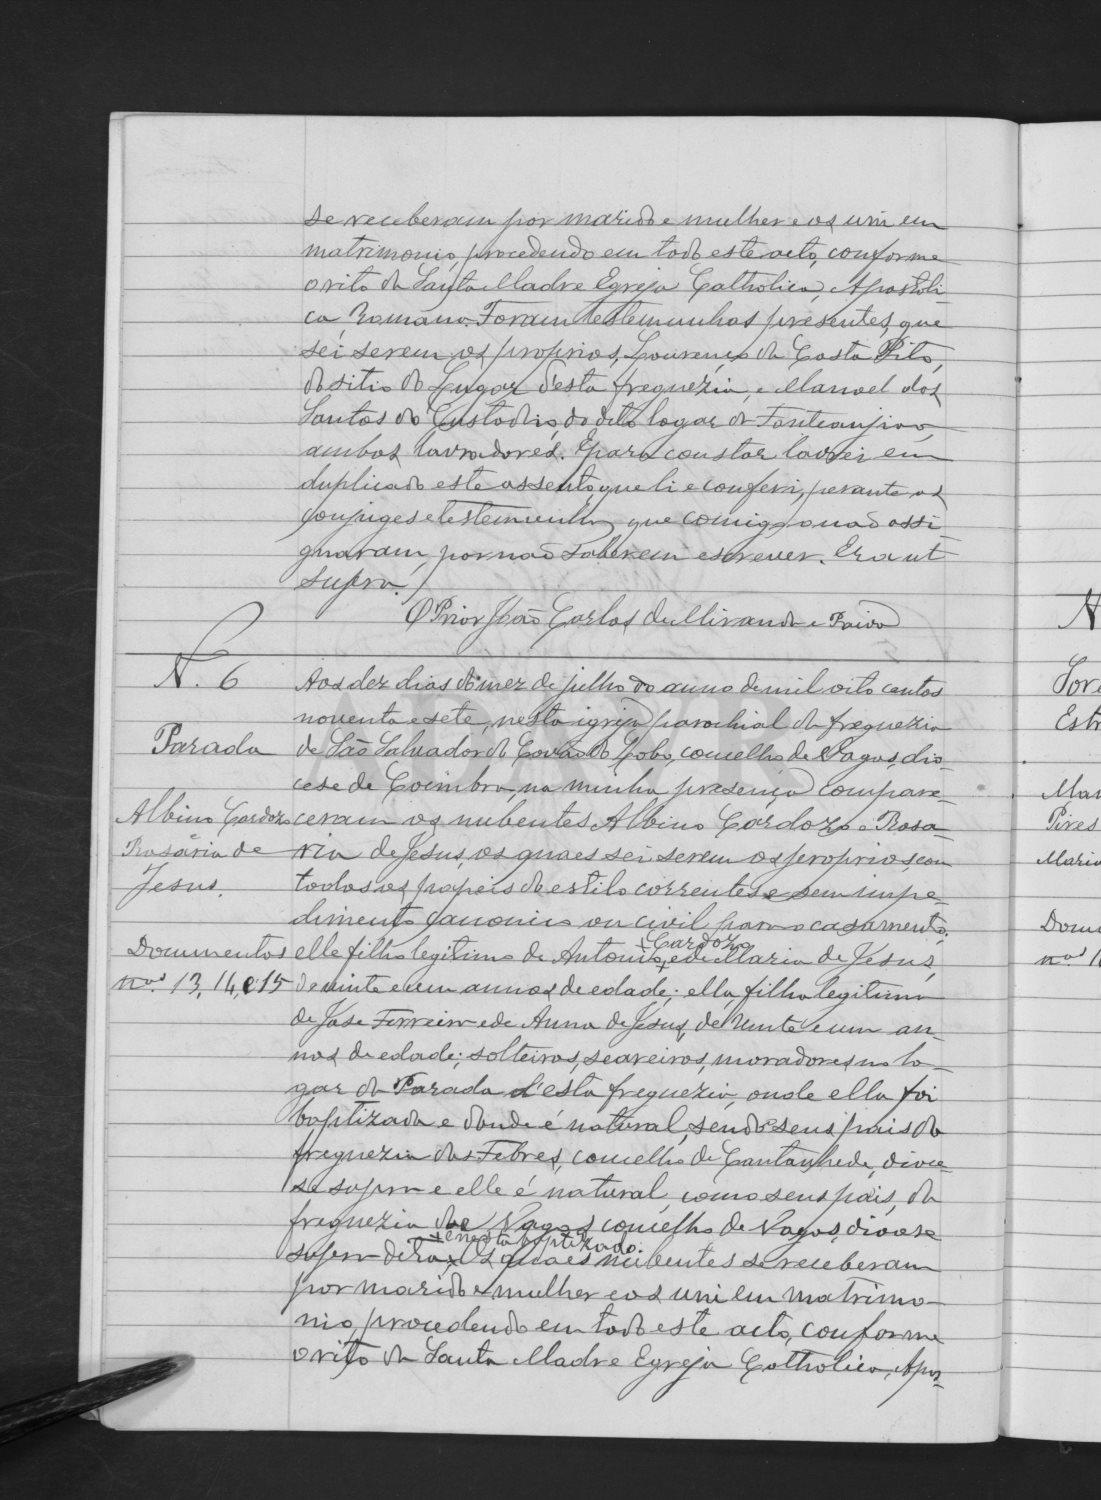 se receberam por marido e mulher e os uni em
matrimonio, procedendo em todo este acto, conforme
o rito da Santa Madre Egreja Catholica, Apostoli-
ca, Romana. Foram testemunhas presentes, que
sei serem os proprios, Lourenço da Costa Pito,
do sitio do Lugar d'esta freguezia, e Manoel dos
Santos do Custodio, do dito logar de Fonteanjiao,
ambos lavradores. E para constar lavrei em
duplicado este assento, que li e conferi, perante os
conjuges e testemunhas, que comigo não assi-
gnaram, por não saberem escrever. Era ut
supra.
O Prior João Carlos de Miranda e Paiva
N. 6
Parada
Albino Cardozo
Rosaria de
Jesus.
Documentos
nos 13, 14, e 15
Aos dez dias do mez de julho do anno de mil oito centos
noventa e sete, nesta igreja parochial da freguezia
de São Salvador do Covão do Lobo, concelho de Vagos, dio-
cese de Coimbra, na minha presença compare-
ceram os nubentes Albino Cardozo e Rosa-
ria de Jesus, os quaes sei serem os proprios, com
todos os papeis do estilo correntes e sem impe-
dimento canonico ou civil para o casamento;
+ Cardozo
elle filho legitimo de Antonio + e de Maria de Jesus,
de vinte e um annos de edade; ella, filha legitima
de José Ferreira e de Anna de Jesus, de vinte e um an-
nos de edade; solteiros, seareiros, moradores no lo-
gar da Parada d'esta freguezia, onde ella foi
baptizada e donde é natural, sendo seus pais da
freguezia das Febres, concelho de Cantanhede, dioce-
se supra e elle é natural, como seus pais, da
freguezia de Vagos concelho de Vagos, diocese
+ e nesta baptizado.
supra dita + Os quaes nubentes se receberam
por marido e mulher e os uni em matrimo-
nio, procedendo em todo este acto, conforme
o rito da Santa Madre Egreja Catholica, Apos-
N
Mar
Pires
Maria
Docu